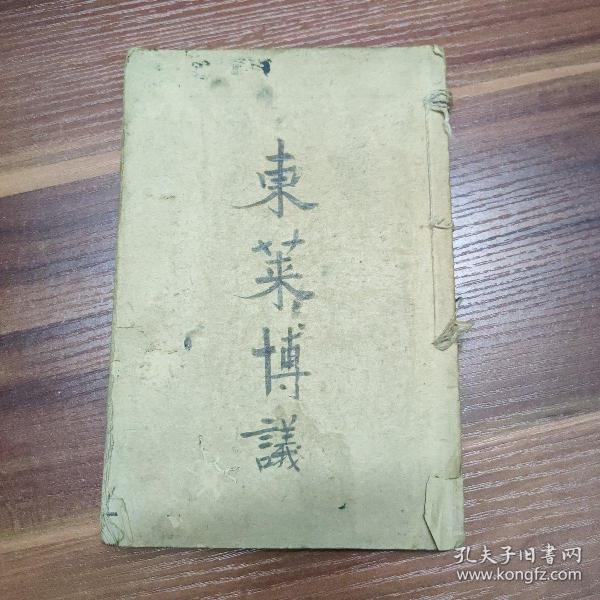 東萊博議
孔夫子旧書网
www.kongfz.com